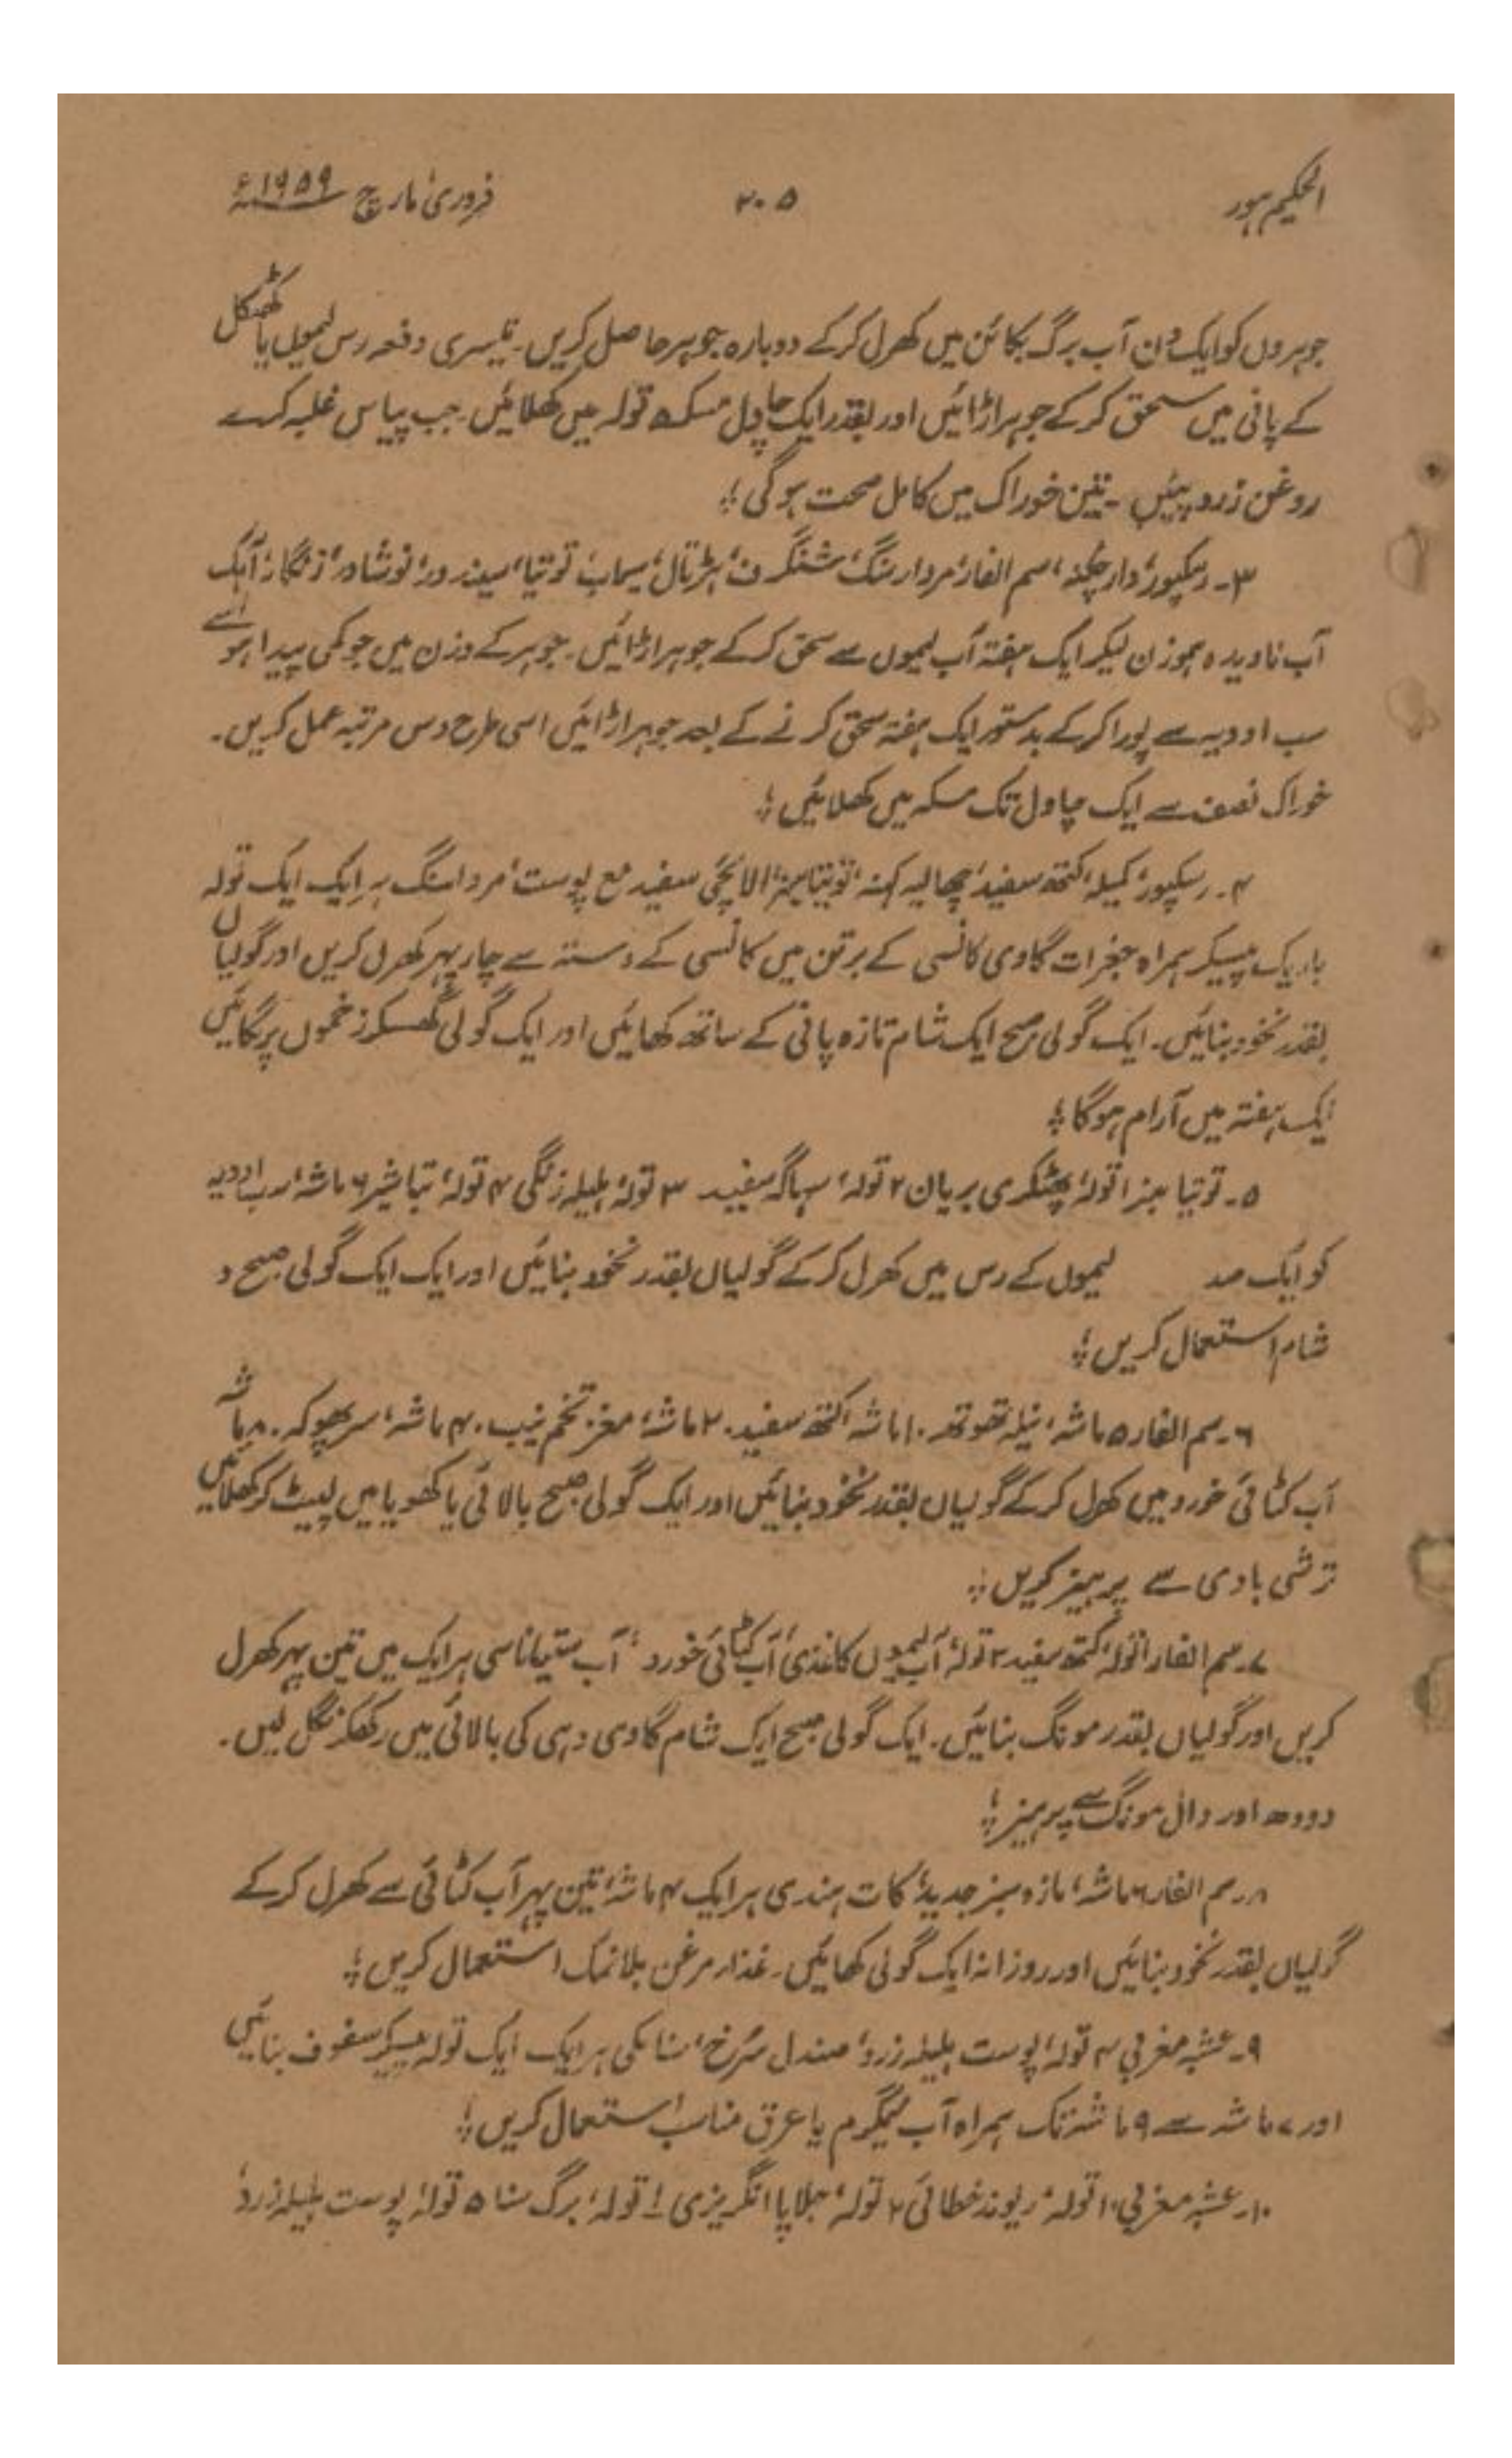 الحکیم لاہور ۲۰۵ فروری، مارچ ۱۹۵۹ء
جوہروں کو ایک دن آب برگ بکائن میں کھرل کرکے دوبارہ جوہر حاصل کریں۔ تیسری دفعہ رس لیموں یا کھٹکل
کے پانی میں سحق کرکے جوہر اڑائیں اور بقدر ایک چاول مسکہ ۵ تولہ میں کھلائیں۔ جب پیاس غلبہ کرے
روغن زرد پئیں۔ تین خوراک میں کامل صحت ہوگی؛
۳۔ رسکپور، دارچکنہ، سم الفار، مردار سنگ، شنگرف، ہڑتال، سیماب، توتیا، سیندور، نوشادر، زنگار، آہک
آب نادیدہ ہموزن لیکر ایک ہفتہ آب لیموں سے سحق کرکے جوہر اڑائیں۔ جوہر کے وزن میں جو کمی پیدا ہو اُسے
سب ادویہ سے پورا کرکے بدستور ایک ہفتہ سحق کرنے کے بعد جوہر اڑائیں اسی طرح دس مرتبہ عمل کریں۔
خوراک نصف سے ایک چاول تک مسکہ میں کھلائیں؛
۴۔ رسکپور، کمیلہ، کتھہ سفید، چھالیہ کہنہ، توتیا سبز، الائچی سفید مع پوست، مردا سنگ ہر ایک ایک تولہ
باریک پیسکر ہمراہ جغرات گاوی کانسی کے برتن میں کانسی کے دستہ سے چار پہر کھرل کریں اور گولیاں
بقدر نخود بنائیں۔ ایک گولی صبح ایک شام تازہ پانی کے ساتھ کھائیں اور ایک گولی گھسکر زخموں پر لگائیں
ایک ہفتہ میں آرام ہوگا؛
۵۔ توتیا سبز ۱ تولہ، پھٹکری بریان ۲ تولہ، سہاگہ سفید ۳ تولہ، ہلیلہ زنگی ۴ تولہ، تباشیر ۶ ماشہ، سب ادویہ
کو ایک صد لیموں کے رس میں کھرل کرکے گولیاں بقدر نخود بنائیں اور ایک ایک گولی صبح و
شام استعمال کریں؛
۶۔ سم الفار ۵ ماشہ، نیلہ تھوتھہ ۱۰ ماشہ، کتھہ سفید ۲۰ ماشہ، مغز تخم نیب ۴۰ ماشہ، سرپھوکہ ۸۰ ماشہ
آب کٹائی خورد میں کھرل کرکے گولیاں بقدر نخود بنائیں اور ایک گولی صبح بالائی یا کھویا میں لپیٹ کر کھلائیں
ترشی بادی سے پرہیز کریں؛
۷۔ سم الفار ۱ تولہ، کتھہ سفید ۲ تولہ، آب لیموں کاغذی، آب کٹائی خورد، آب ستیاناسی ہر ایک میں تین پہر کھرل
کریں اور گولیاں بقدر مونگ بنائیں۔ ایک گولی صبح ایک شام گاوی دہی کی بالائی میں رکھکر نگل لیں۔
دودھ اور دال مونگ سے پرہیز؛
۸۔ سم الفار ۲ ماشہ، مازو سبز جدید، کات ہندی ہر ایک ۴ ماشہ، تین پہر آب کٹائی سے کھرل کرکے
گولیاں بقدر نخود بنائیں اور روزانہ ایک گولی کھائیں۔ غذا، مرغن بلا نمک استعمال کریں؛
۹۔ عشبہ مغربی ۴ تولہ، پوست ہلیلہ زرد، صندل سُرخ، سنا مکی ہر ایک ایک تولہ پیسکر سفوف بنائیں
اور ۷ ماشہ سے ۹ ماشہ تک ہمراہ آب نیمگرم یا عرق مناسب استعمال کریں؛
۱۰۔ عشبہ مغربی ۱۰ تولہ، ریوند خطائی ۲ تولہ، جلاپا انگریزی ۱ تولہ، برگ سنا ۵ تولہ، پوست ہلیلہ زرد،